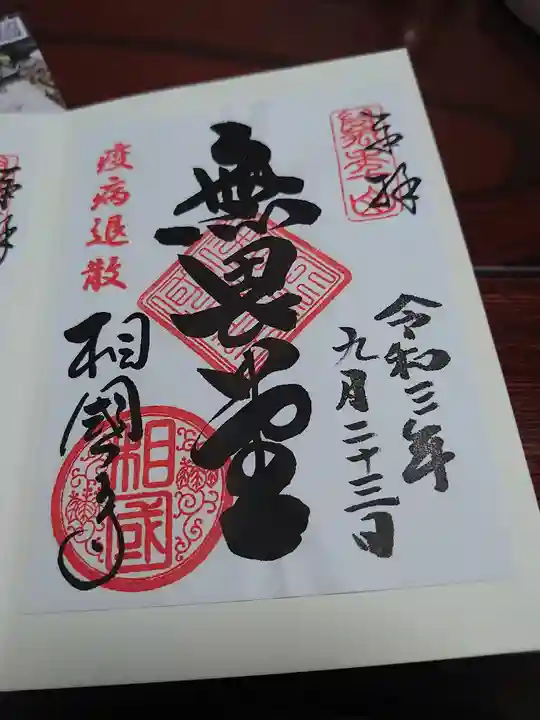 奉拝
令和三年
九月二十三日
無畏堂
疫病退散
相國寺
相国